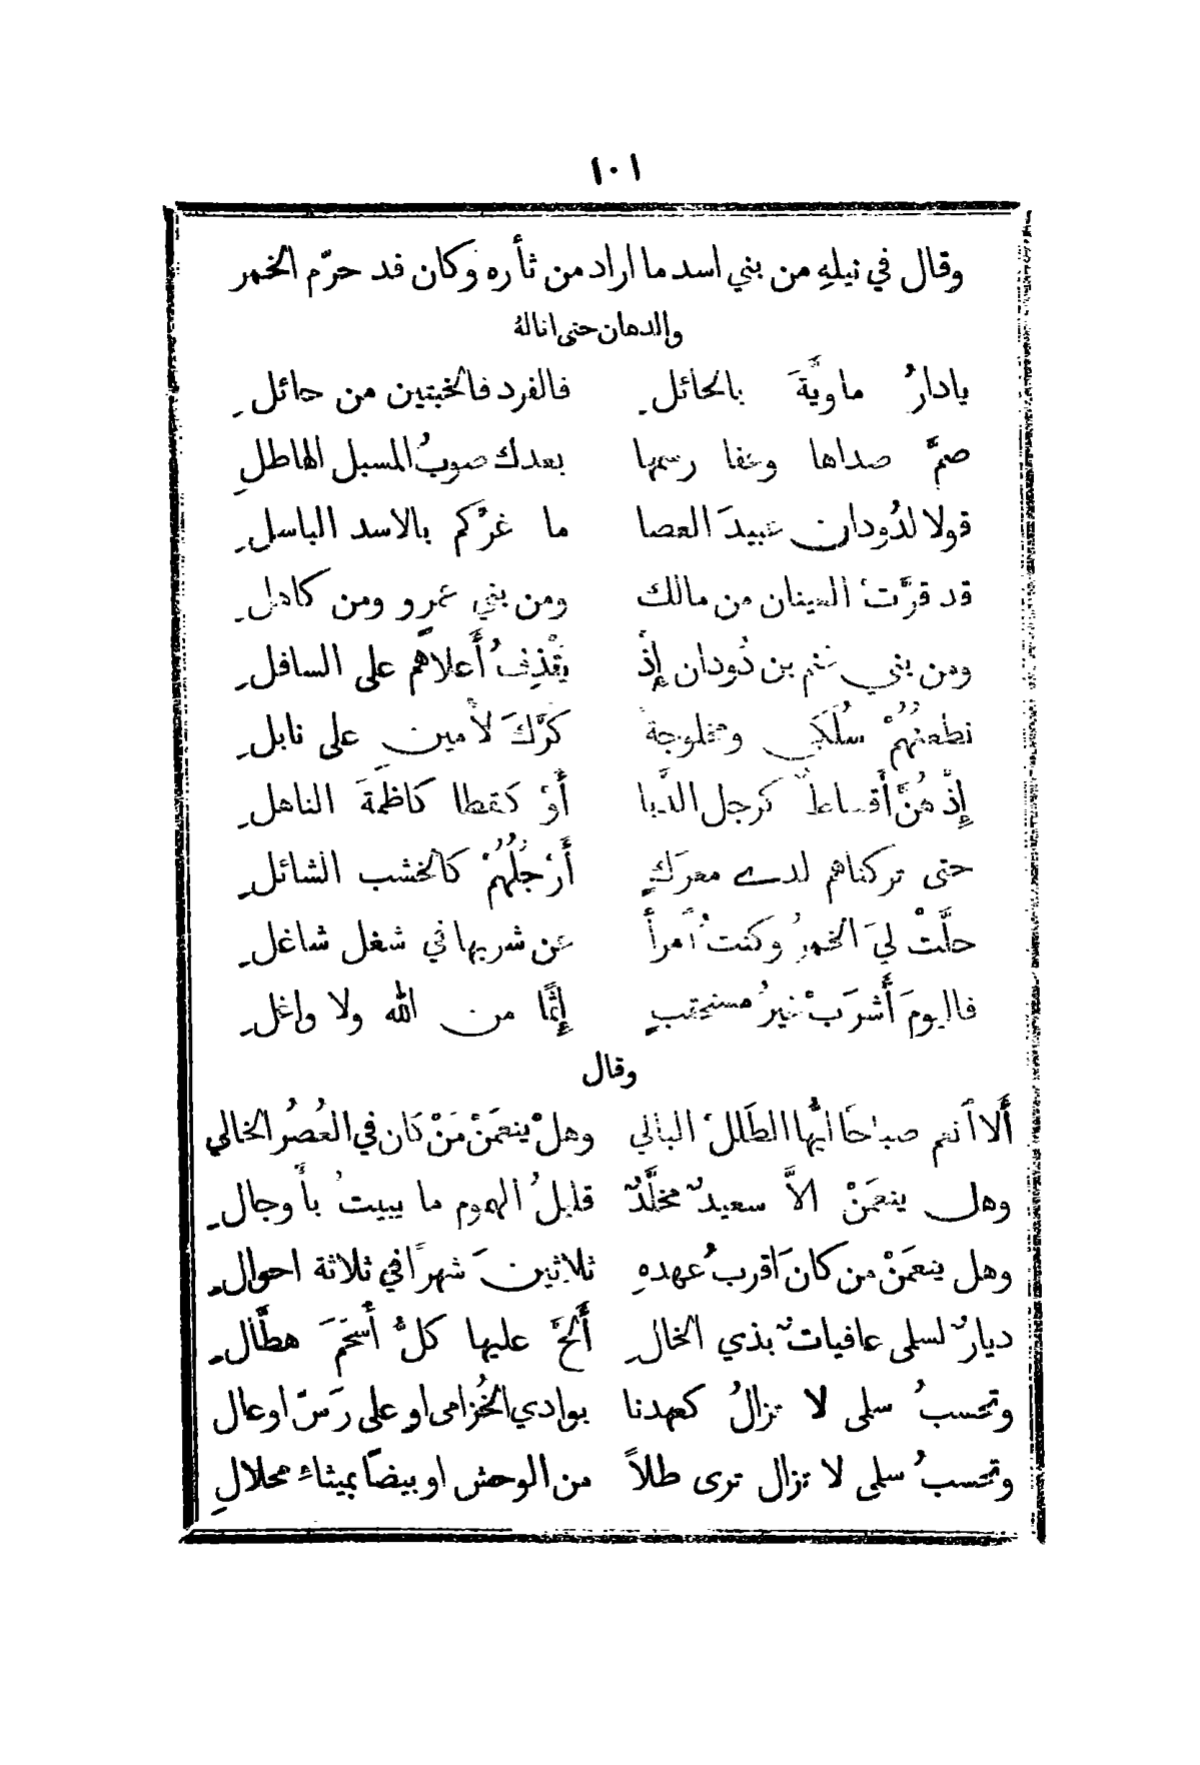 ١٠١
وقال في نيلهِ من بني اسد ما اراد من ثأره وكان قد حرّم الخمر
والدهان حتى انالهُ
يادارُ ماويَّةَ بالحائلِ فالفرد فالخبتين من حائلِ
صمَّ صداها وعفا رسمها بعدك صوبُ المسبل الهاطلِ
قولا لدُودان عبيدَ العصا ما غرَّكم بالاسد الباسلِ
قد قرَّت العينان من مالك ومن بني عمرو ومن كاهلِ
ومن بني غنم بن دُودان إِذْ يَقْذِفُ أَعلاهم على السافلِ
نطعنُهُمْ سُلكَى ومخلوجةً كرَّكَ لأَمين على نابلِ
إِذْ هُنَّ أَقساطٌ كرجل الدَّبا أَوْ كقطا كاظمَةَ الناهلِ
حتى تركناهم لدے معرَكٍ أَرْجُلُهُمْ كالخشب الشائلِ
حلَّتْ ليَ الخمرُ وكنتُ اَمرأً عن شربها في شغل شاغلِ
فاليومَ أَشرَبْ غيرُ مستحقبٍ إِثمًا من الله ولا واغلِ
وقال
أَلا اَنعم صباحًا ايُّها الطَلَلُ البالي وهلْ ينعمَنْ مَنْ كان في العُصُر الخالي
وهل ينعمَنْ الاَّ سعيدٌ مخلَّدٌ قليلُ الهموم ما يبيتُ بأَوجالِ
وهل ينعمَنْ من كانَ اقربُ عهدهِ ثلاثينَ شهرًا في ثلاثة احوالِ
ديارٌ لسلمى عافياتٌ بذي الخالِ أَلَحَّ عليها كلُّ أَسحَمَ هطَّالِ
وتحسبُ سلمى لا تزالُ كعهدنا بوادي الخُزامى او على رَسّ اوعال
وتحسبُ سلمى لا تزال ترى طلاً من الوحش او بيضًا بميثاء محلالِ